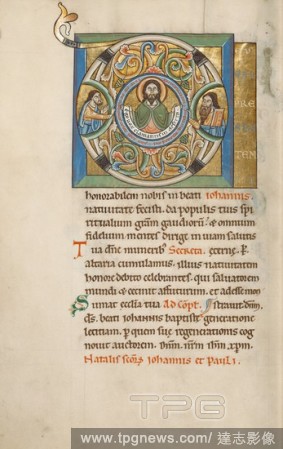 honorabilem nobis in beati iohannis
natiuitate fecisti. da populis tuis spi
ritualium gram gaudiorum. & omnium
fidelium mentes dirige in uiam salutis
Tua dne muneribus Secreta. eterne. P.
altaria cumulamus. illius natiuitatem
honore debito celebrantes. qui saluatorem
mundi & cecinit affuturum. et adesse mon
Sumat eccla tua Ad Copl.
ds. beati iohannis baptiste generatione
letitiam. p quem sue regenerationis cog
nouit auctorem. dnm. nrm. ihm. xpm.
Natalis scorum iohannis et pauli.
TPG
www.tpgnews.com / 達志影像